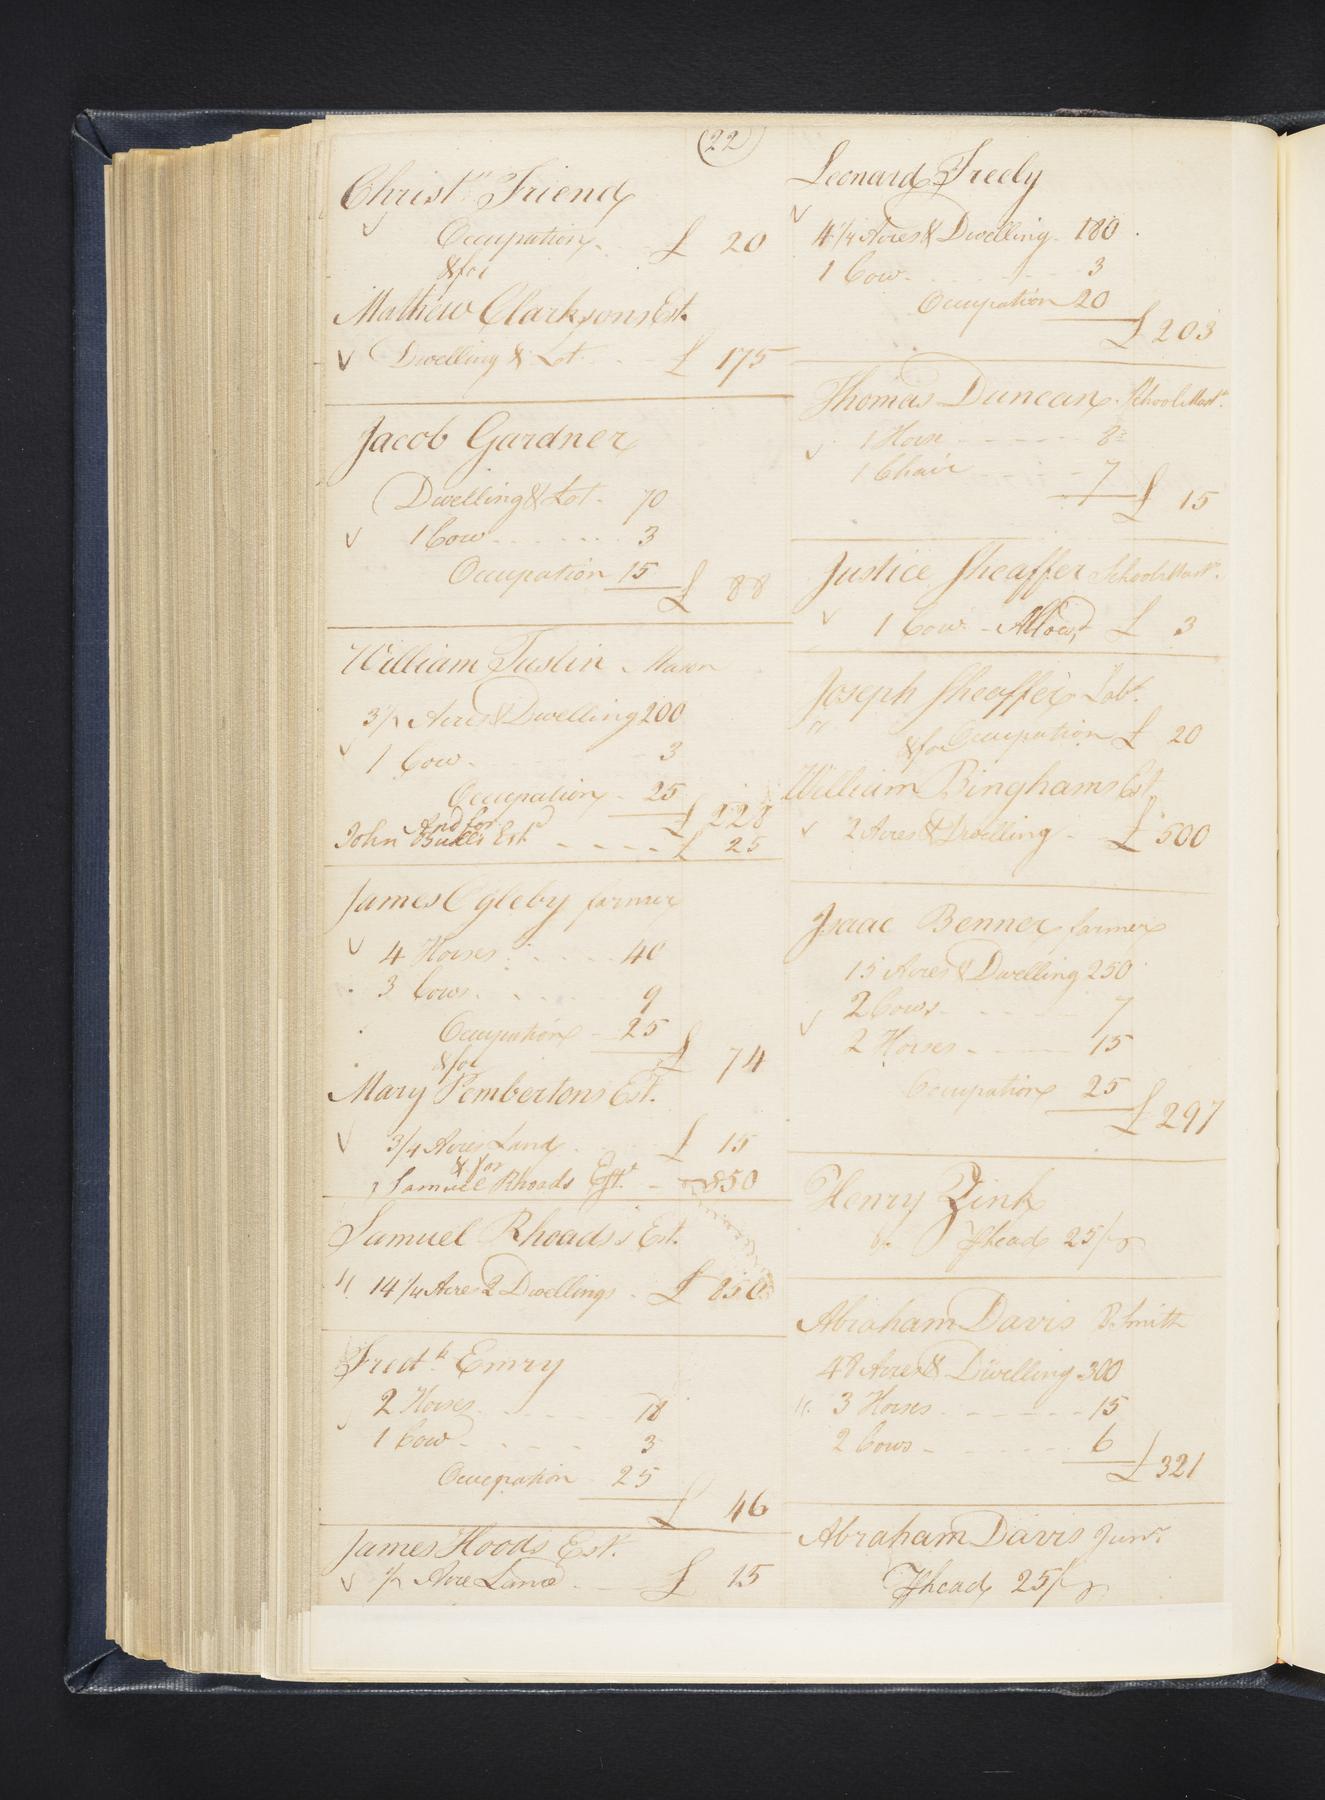 22
Christr Friend
Occupation £ 20
& for
Mathew Clarksons Est.
Dwelling & Lot £ 175
Jacob Gardner
Dwelling & Lot 70
1 Cow 3
Occupation 15
£ 88
William Tustin Mason
3 1/2 Acres & Dwelling 200
1 Cow 3
Occupation 25
£ 228
And for
John Est £ 25
James Ogleby farmer
4 Horses 40
3 Cows 9
Occupation 25
£ 74
& for
Mary Pembertons Est.
3/4 Acres Land £ 15
& for
Samuel Rhoads Est. 850
Samuel Rhoads's Est.
14 1/4 Acres 2 Dwellings £ 850
Fredk Emry
2 Horses 18
1 Cow 3
Occupation 25
£ 46
James Hoods Est.
1/2 Acre Land £ 15
Leonard Freely
4 1/4 Acres & Dwelling 180
1 Cow 3
Occupation 20
£ 203
Thomas Duncan School Mastr.
1 Horse 8
1 Chair 7
£ 15
Justice Sheaffer School Mastr.
1 Cow - Allowd £ 3
Joseph Sheaffer Labr.
Occupation £ 20
& for
William Binghams Est.
2 Acres & Dwelling £ 500
Isaac Benner farmer
15 Acres & Dwelling 250
2 Cows 7
2 Horses 15
Occupation 25
£ 297
Henry Zink
head 25/
Abraham Davis B. Smith
48 Acres & Dwelling 300
3 Horses 15
2 Cows 6
£ 321
Abraham Davis Junr.
head 25/